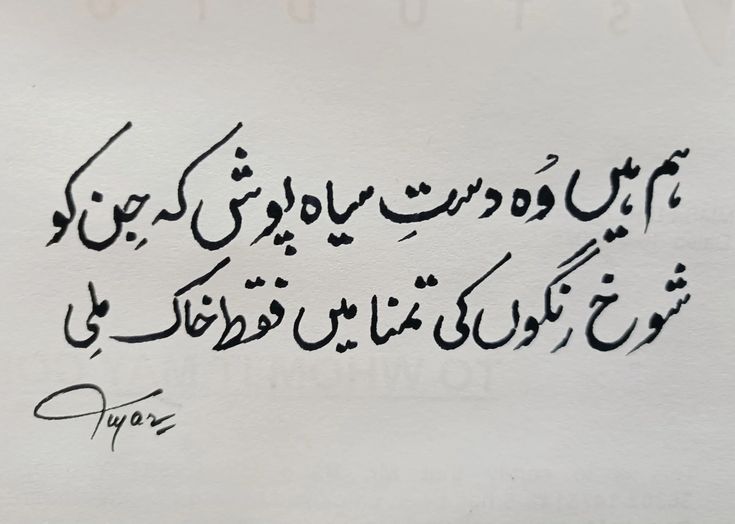 S T U D I O
ہم ہیں وُہ دستِ سیاہ پوش کہ جِن کو
شوخ رنگوں کی تمنا میں فقط خاک مِلی
TO WHOM